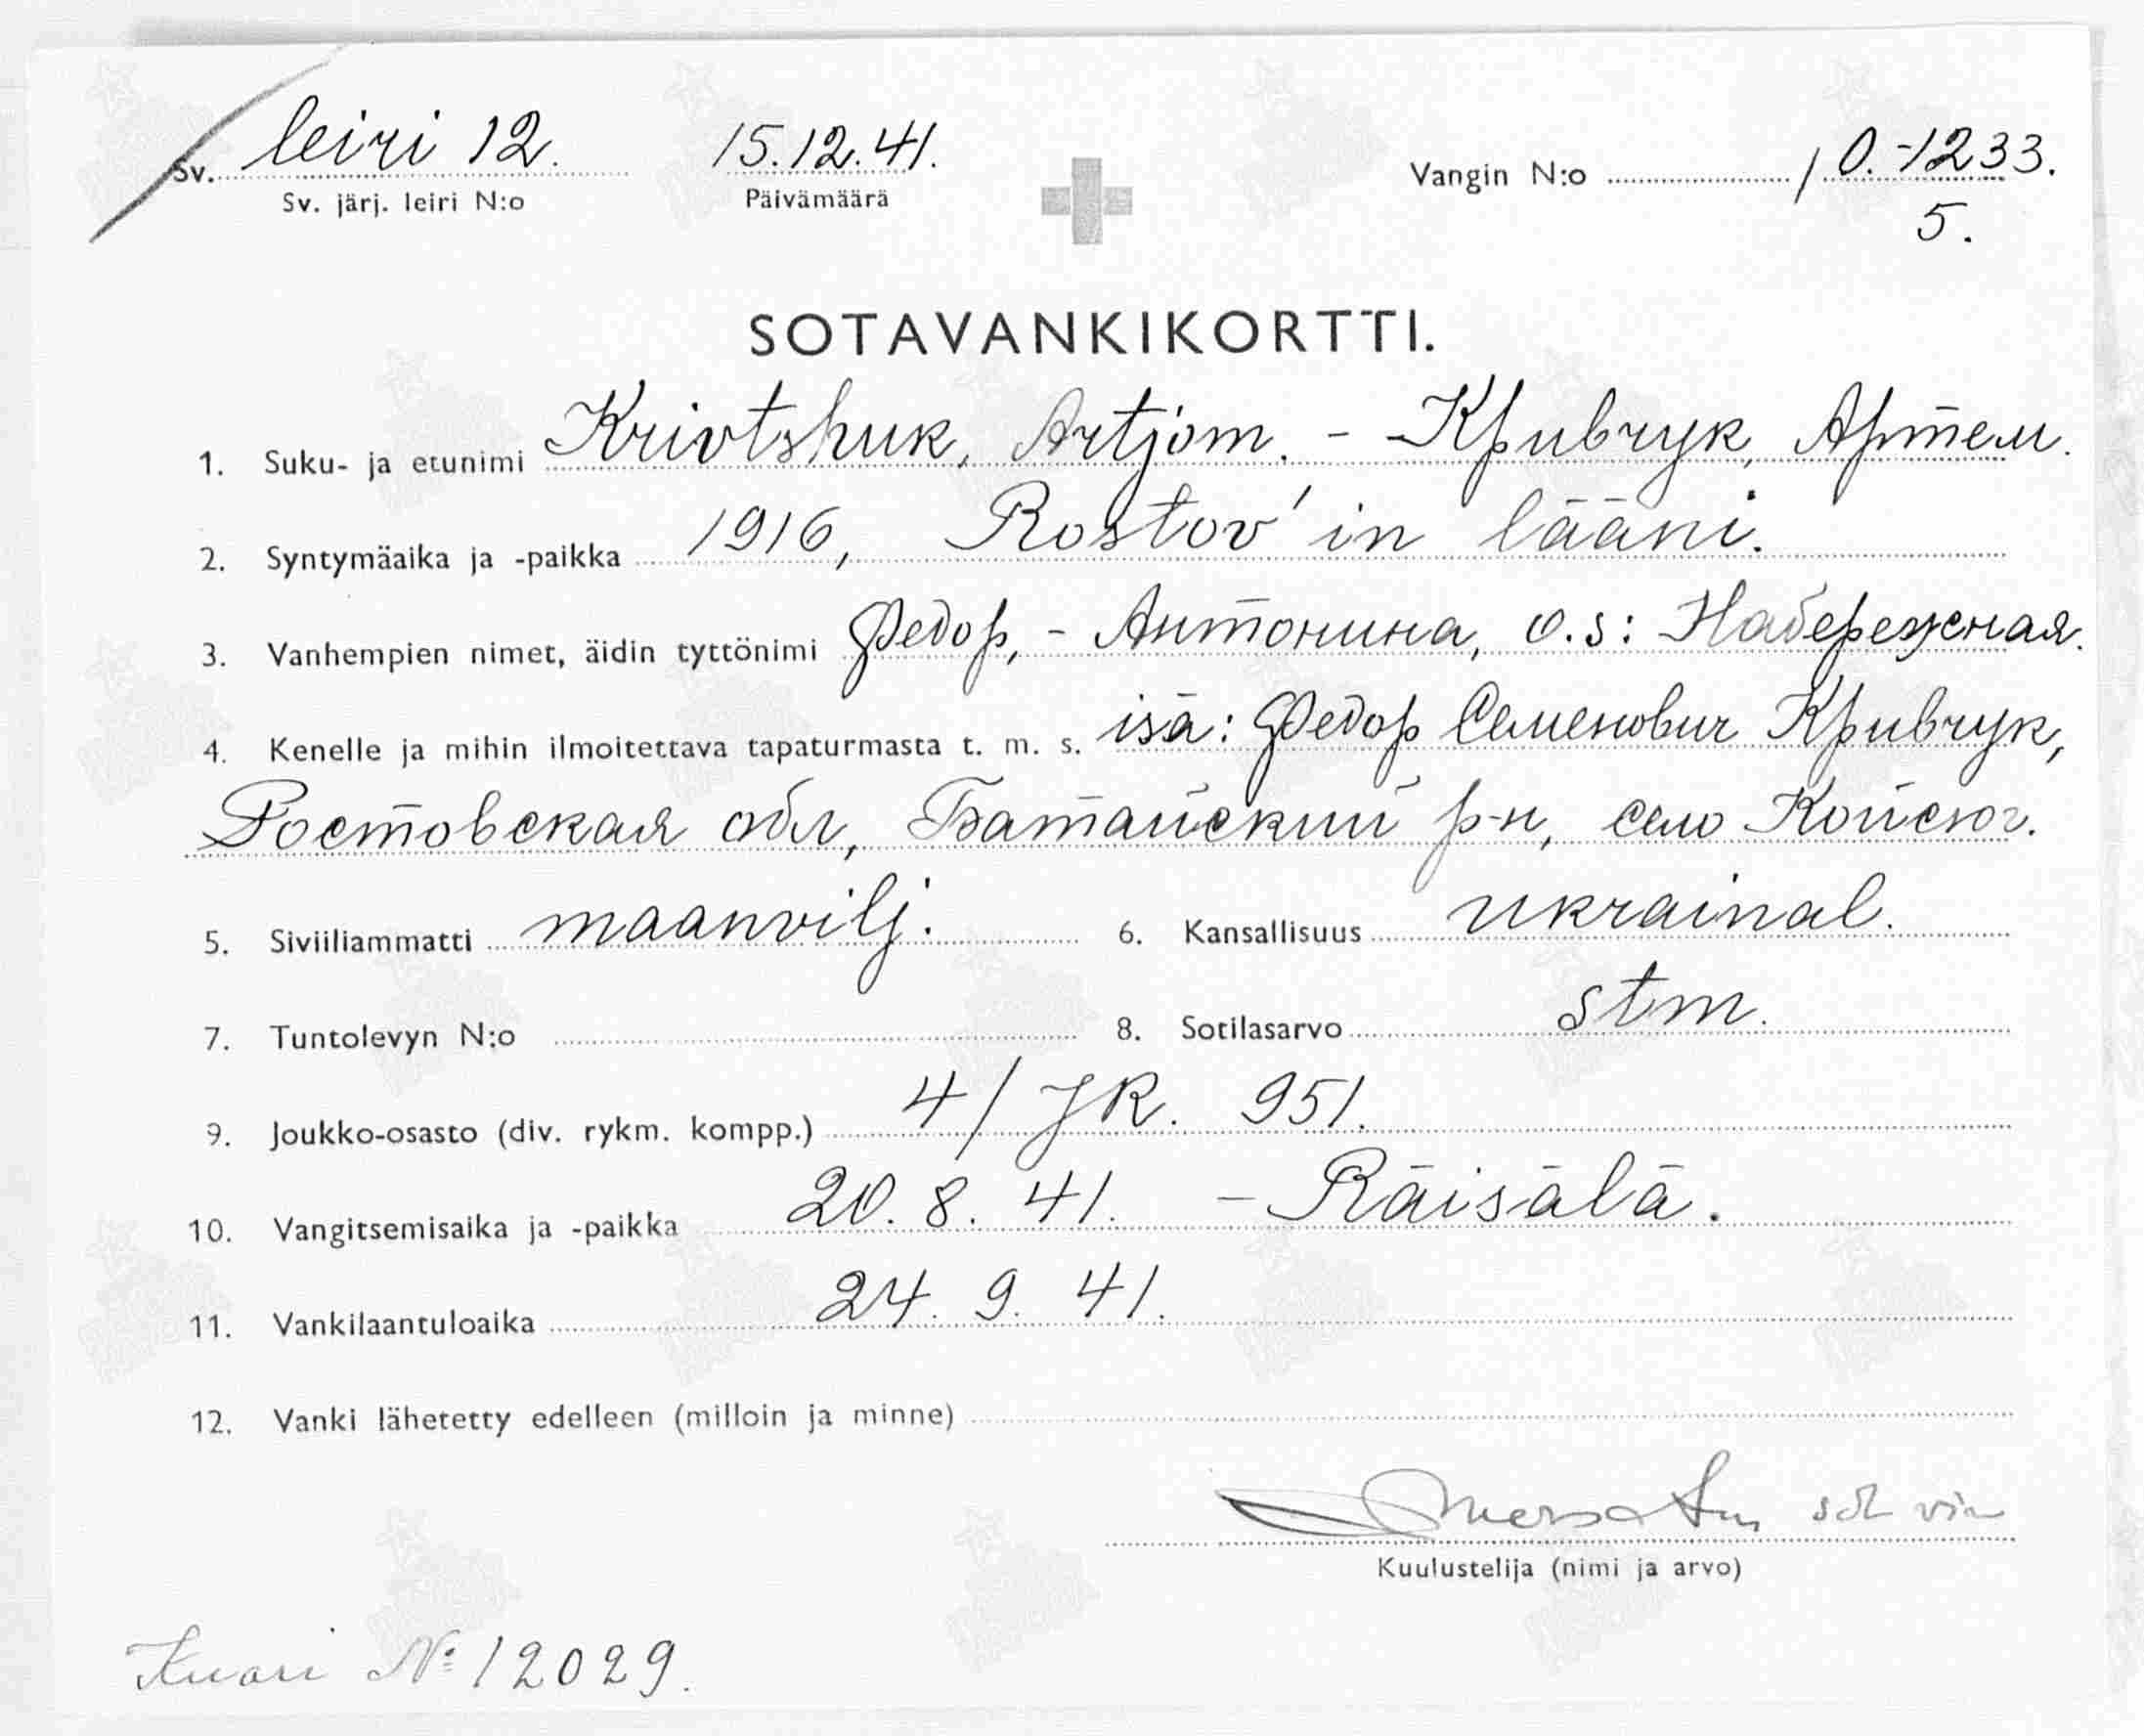 Sv. leiri 12. 15.12.41. Vangin N:o / 0.-1233.
Sv. järj. leiri N:o Päivämäärä 5.
SOTAVANKIKORTTI.
1. Suku- ja etunimi Krivtshuk, Artjom. - Кривчук, Артем.
2. Syntymäaika ja -paikka 1916, Rostov'in lääni.
3. Vanhempien nimet, äidin tyttönimi Федор, - Антонина, o.s: Набережная.
4. Kenelle ja mihin ilmoitettava tapaturmasta t. m. s. isä: Федор Семенович Кривчук,
Ростовская обл, Батайский р-н, село Койсюг.
5. Siviiliammatti maanvilj. 6. Kansallisuus ukrainal.
7. Tuntolevyn N:o 8. Sotilasarvo stm.
9. Joukko-osasto (div. rykm. kompp.) 4/JR. 951.
10. Vangitsemisaika ja -paikka 20.8.41. - Räisälä.
11. Vankilaantuloaika 24.9.41.
12. Vanki lähetetty edelleen (milloin ja minne)
Kuulustelija (nimi ja arvo)
Kuori № 12029.